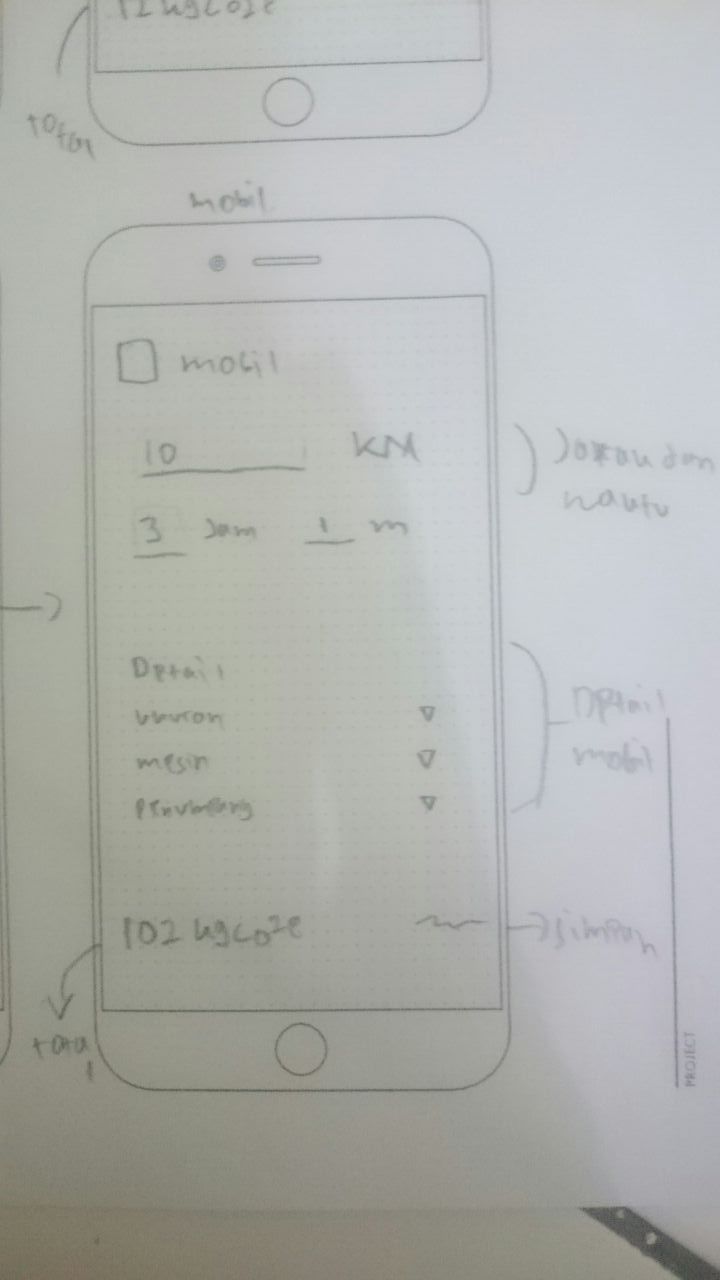 12 kgCO2e
total
mobil
mobil
10 KM
Jarak dan
waktu
3 Jam 1 m
Detail
ukuran
mesin
penumpang
Detail
mobil
102 kgCO2e
simpan
total
PROJECT